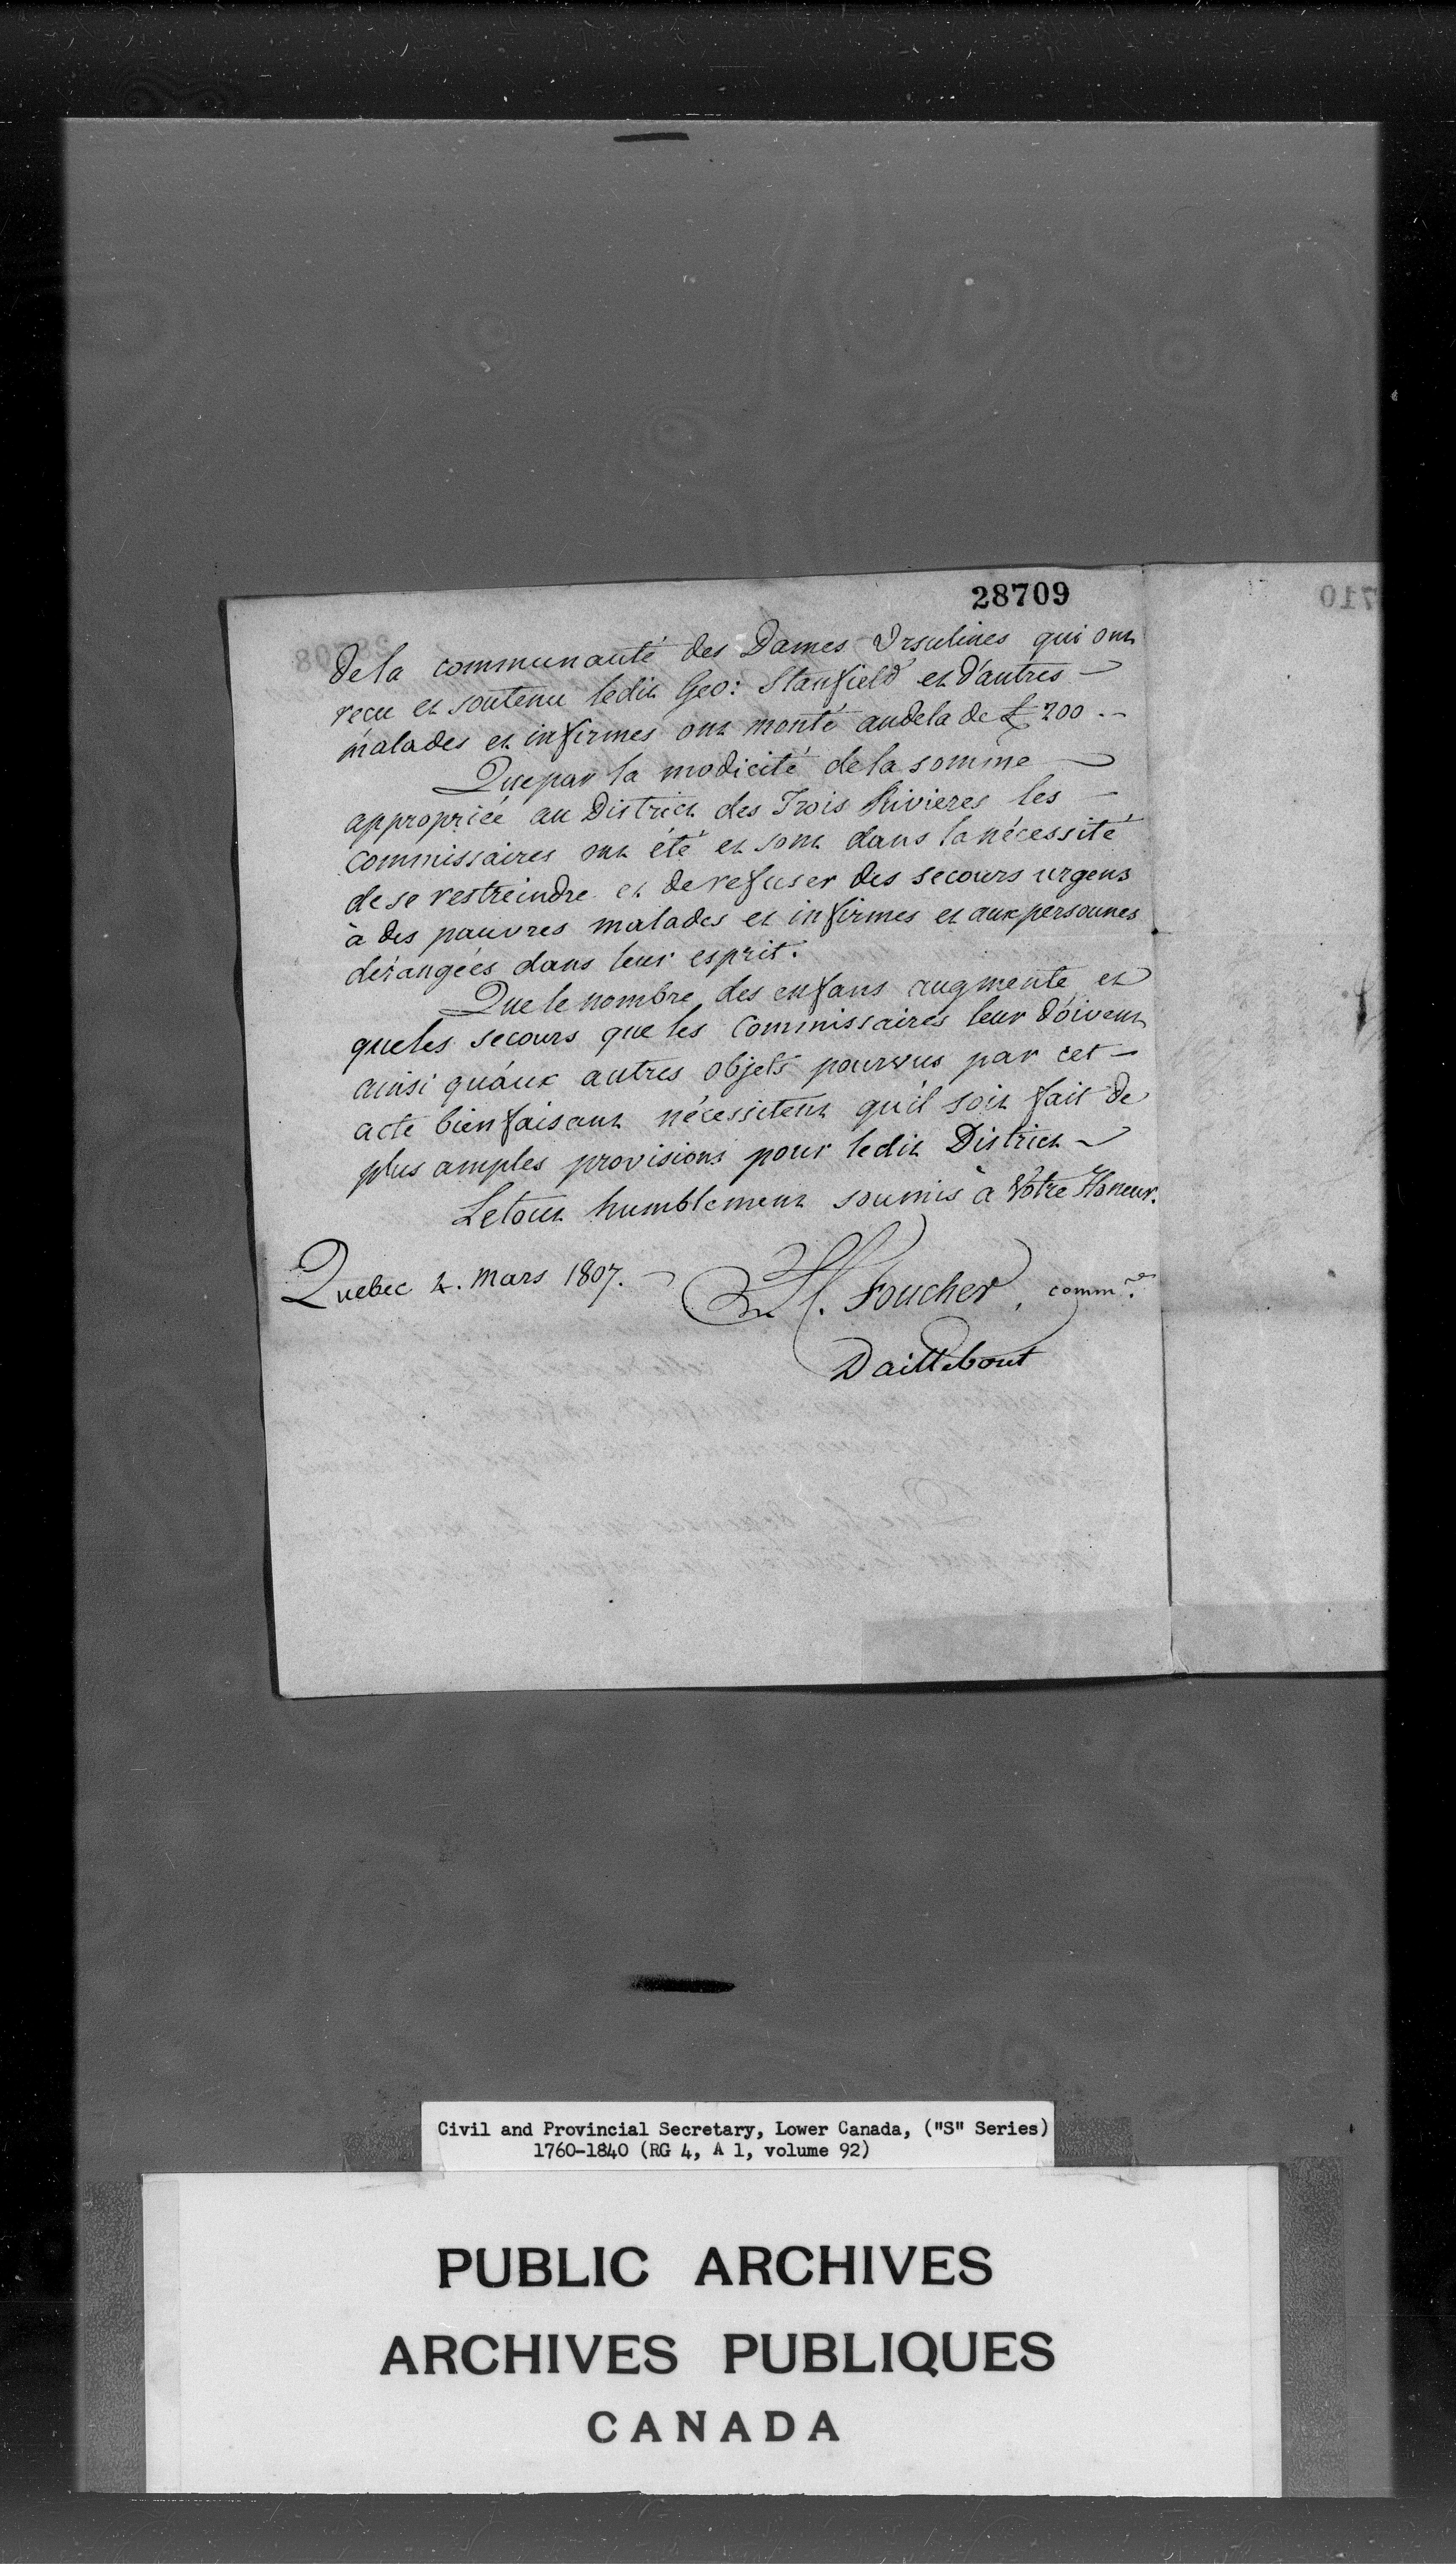 28709
de la communauté des Dames Ursulines qui ont
reçu et soutenu ledit Geo: Stanfield et d'autres –
malades et infirmes ont monté audela de £ 200. –
Que par la modicité de la somme –
appropriée au District des Trois Rivieres les –
commissaires ont été et sont dans la nécessité
de se restreindre et de refuser des secours urgens
à des pauvres malades et infirmes et aux personnes
dérangées dans leur esprit.
Que le nombre des enfans augmente et
que les secours que les Commissaires leur doivent
ainsi qu'aux autres objets pourvus par cet –
acte bienfaisant nécessitent qu'il soit fait de
plus amples provisions pour ledit District –
Le tout humblement soumis à Votre Honeur.
Quebec 4. Mars 1807. –
L. Foucher, commre.
Daillebout
Civil and Provincial Secretary, Lower Canada, ("S" Series)
1760-1840 (RG 4, A 1, volume 92)
PUBLIC ARCHIVES
ARCHIVES PUBLIQUES
CANADA